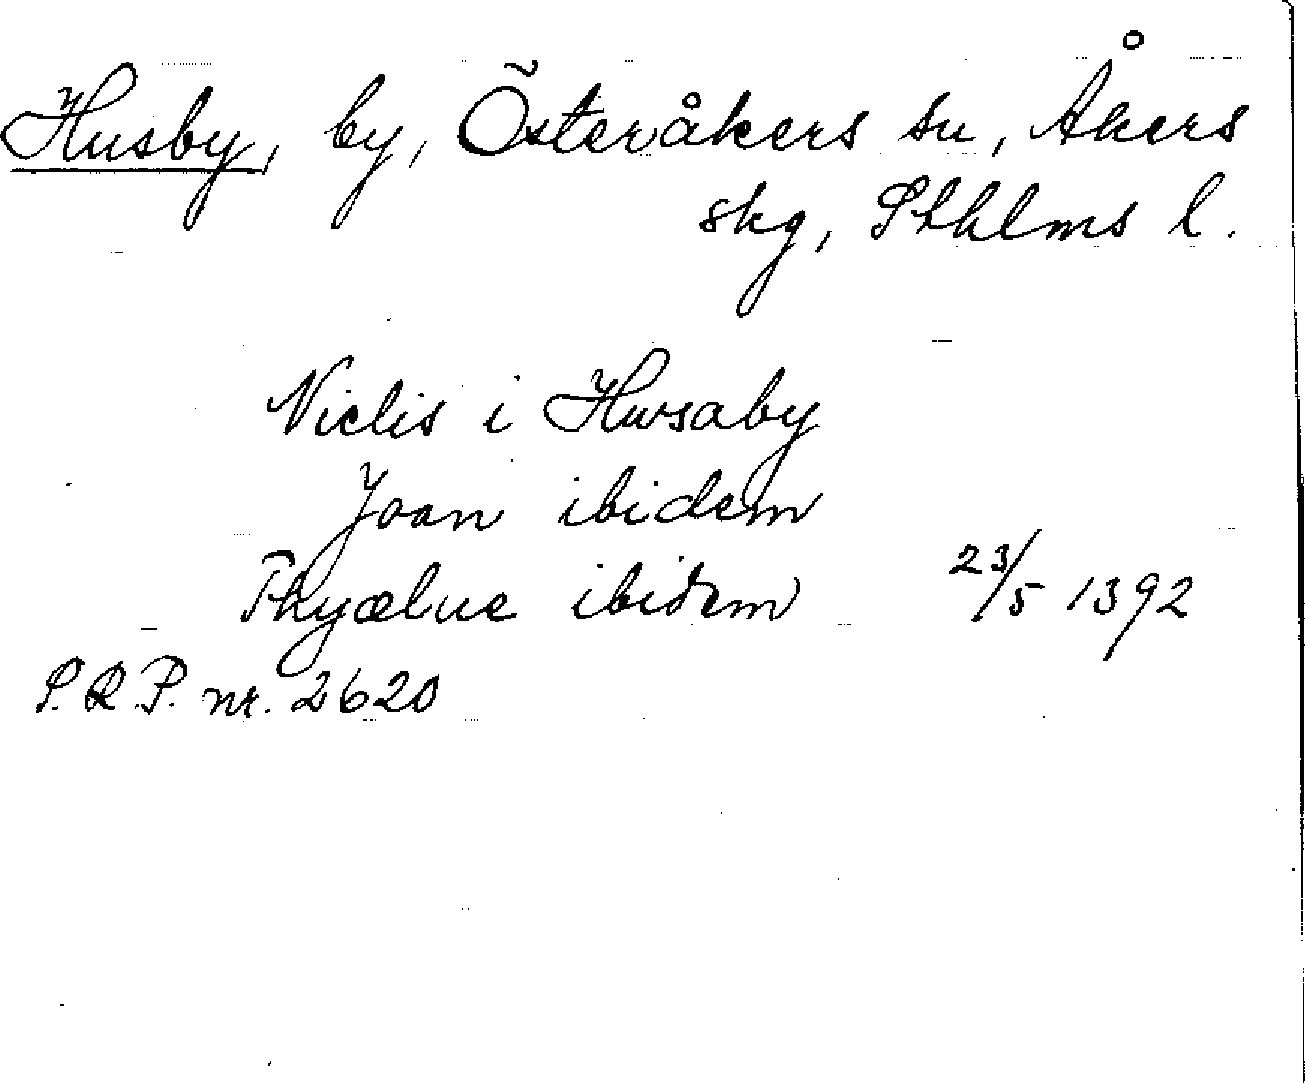 Husby, by, Österåkers sn, Åkers
skg, Sthlms l.
Niclis i Hwsaby
Joan ibidem
Thyælue ibidem 23/5 1392
S.R.P. nr. 2620